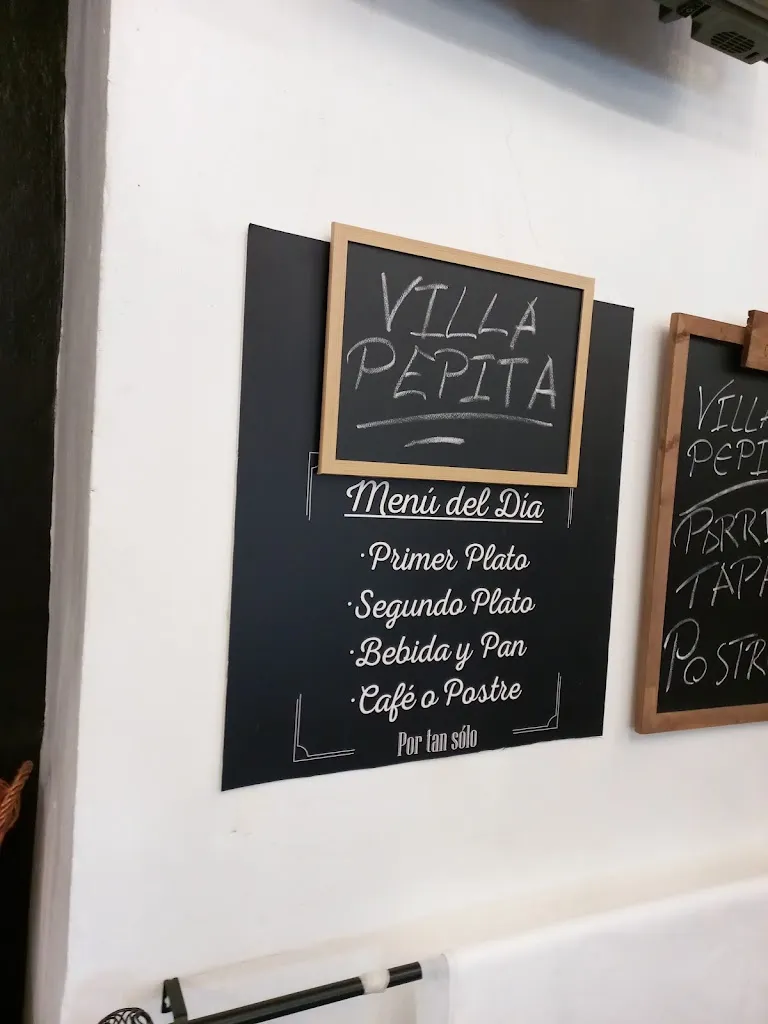 VILLA
PEPITA
Menú del Día
·Primer Plato
·Segundo Plato
·Bebida y Pan
·Café o Postre
Por tan sólo
VILLA